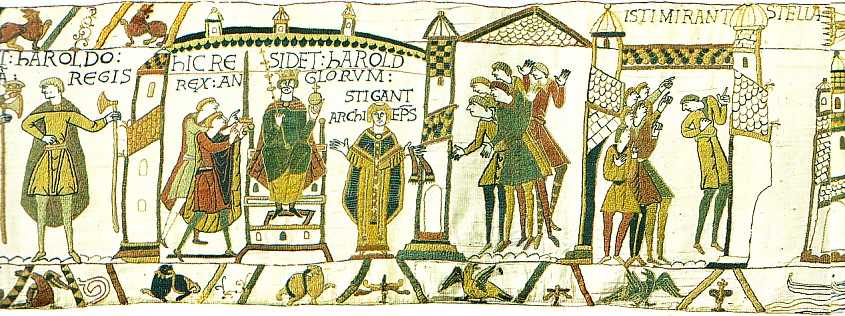 T: hAROLDO:
A: REGIS
hIC RESIDET: hAROLD
REX: ANGLORVM:
STIGANT
ARChIEP̅S
ISTI MIRANT STELLA